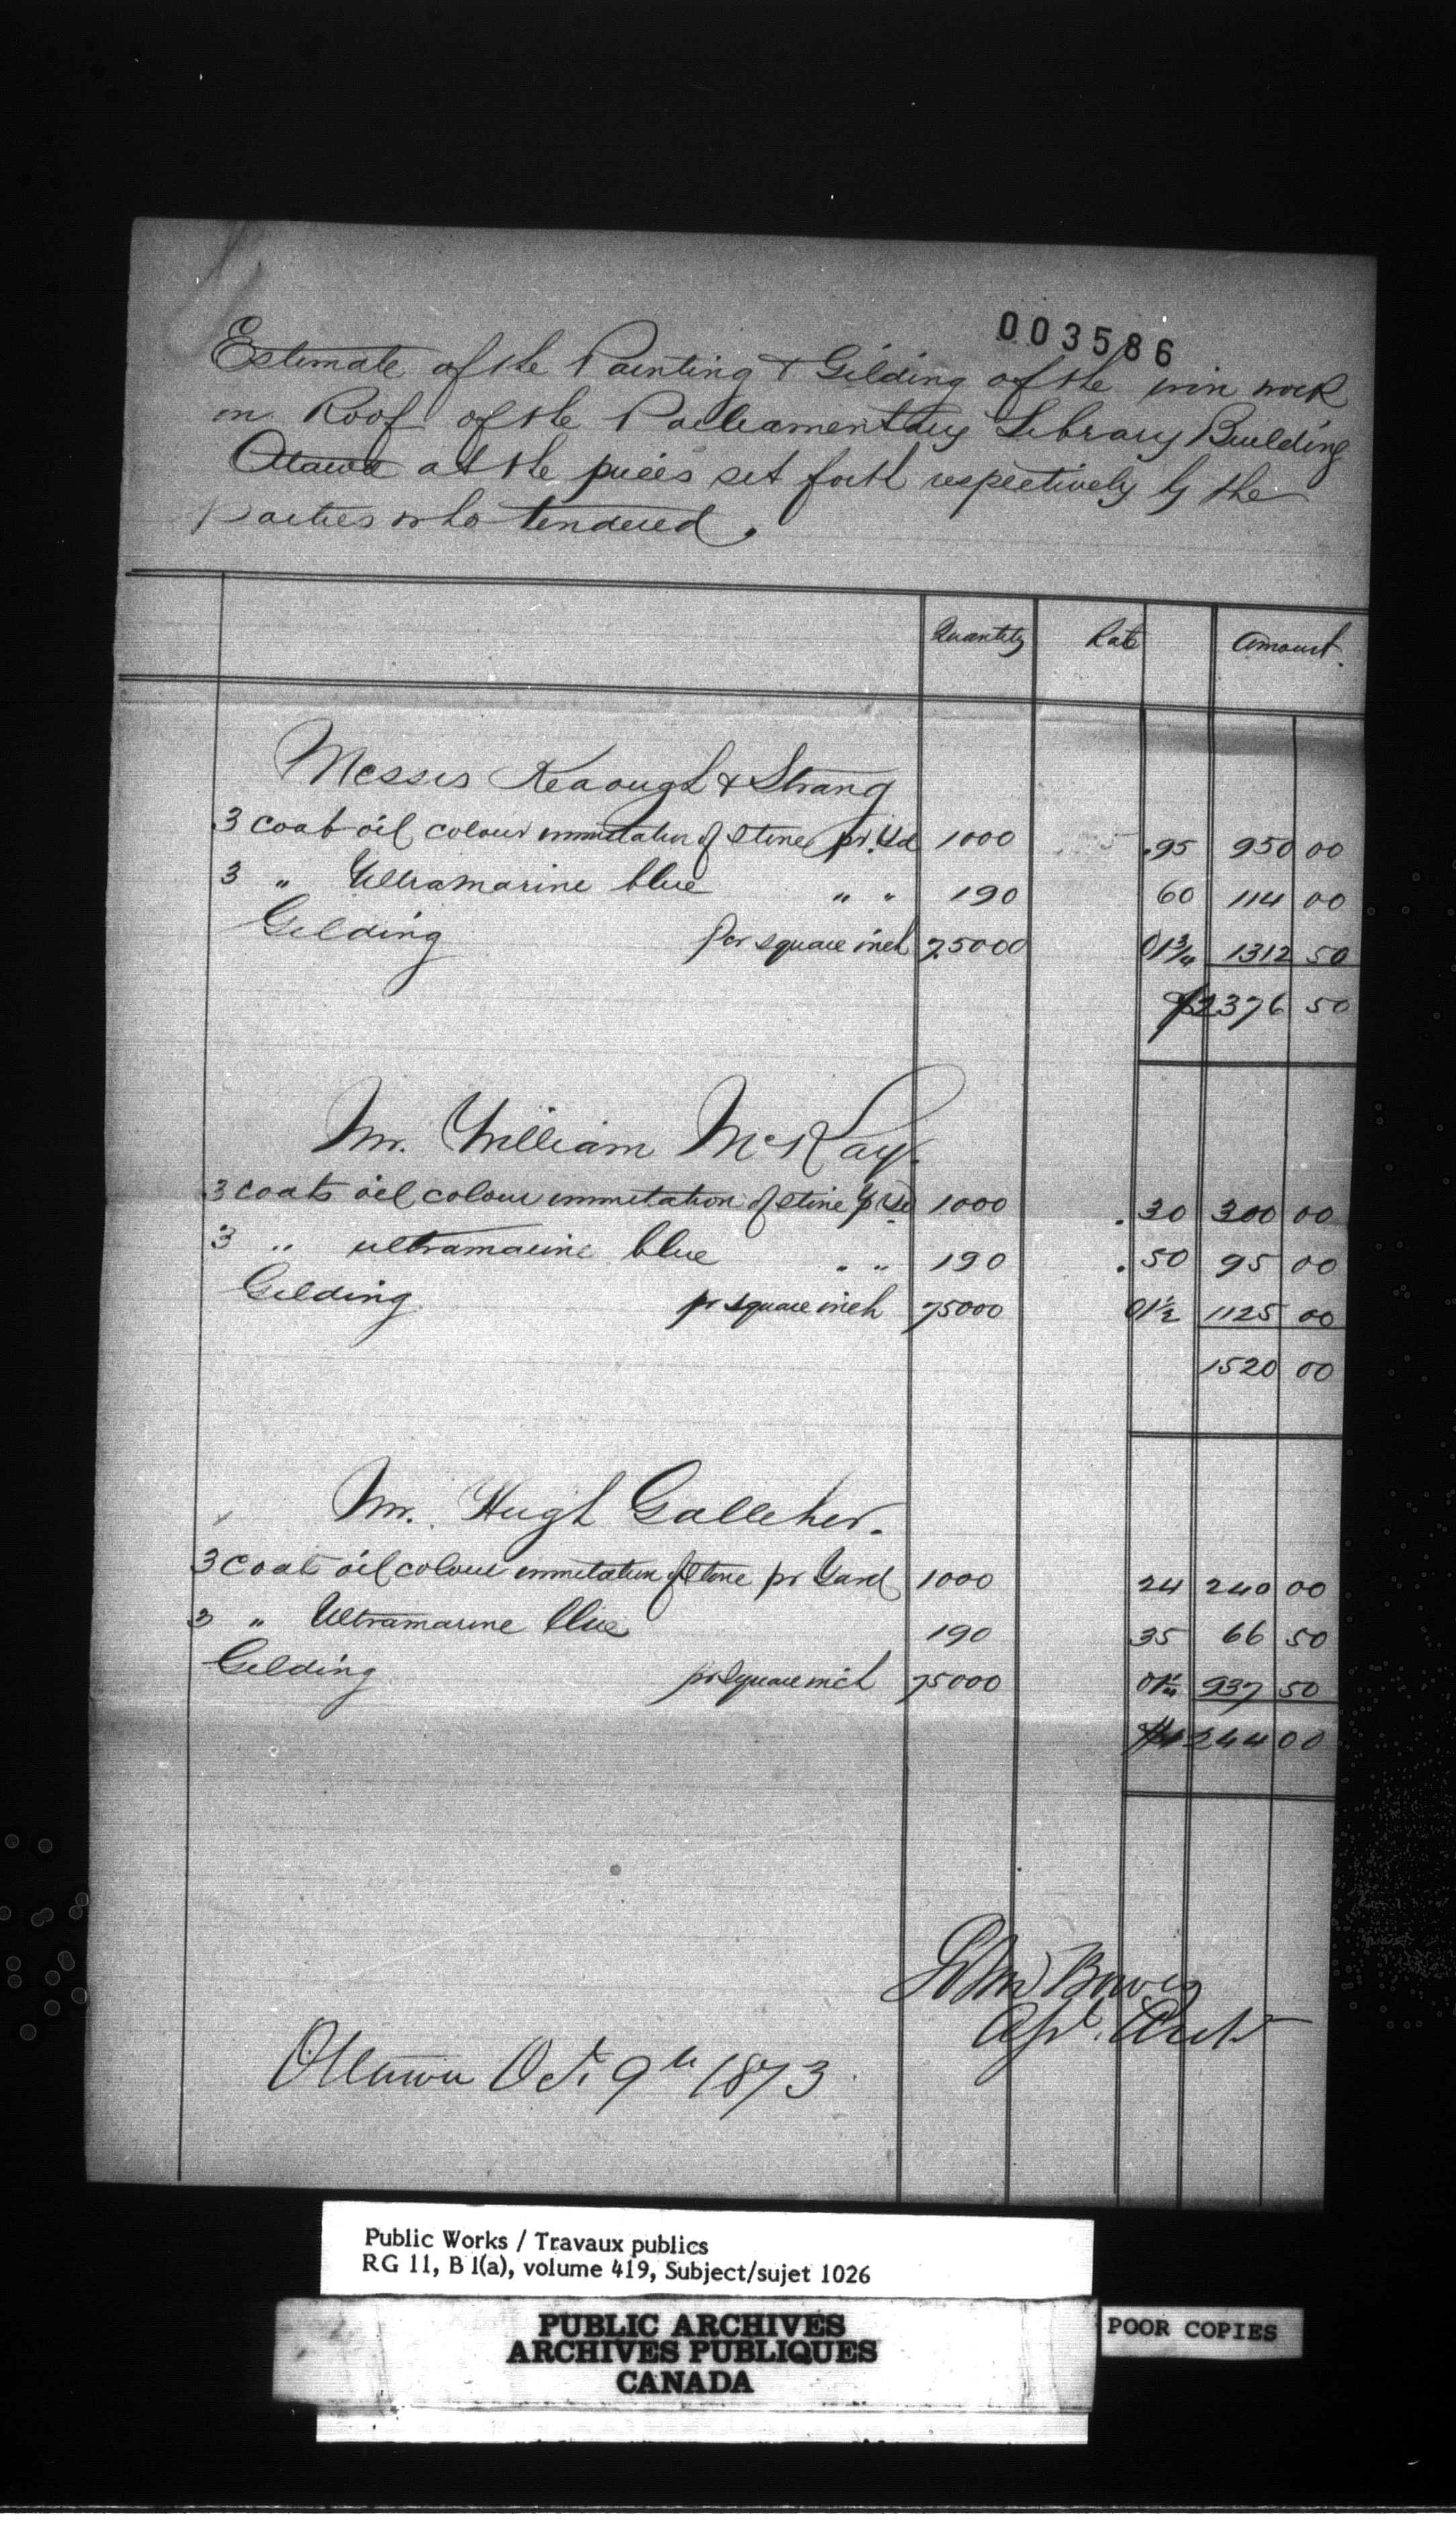 003586
Estimate of the Painting & Gilding of the iron work
on Roof of the Parliamentary Library Building
Ottawa at the prices set forth respectively by the
parties who tendered.
Quantity Rate Amount.
Messrs Keaough & Strang
3 coats oil colour immitation of stone pr. Yd 1000 .95 950 00
3 " Ultramarine blue " " 190 60 114 00
Gilding Per square inch 75000 01¾ 1312 50
$2376 50
Mr. William McKay.
3 coats oil colour immitation of stone pr Yd 1000 .30 300 00
3 " ultramarine blue " " 190 .50 95 00
Gilding pr square inch 75000 01½ 1125 00
1520 00
Mr. Hugh Galleher.
3 Coats oil colour immitation of stone pr Yard 1000 24 240 00
3 " Ultramarine blue 190 35 66 50
Gilding pr Square inch 75000 01¼ 937 50
$1244 00
John Bowes
Ottawa Oct. 9th 1873
Public Works / Travaux publics
RG 11, B 1(a), volume 419, Subject/sujet 1026
PUBLIC ARCHIVES
ARCHIVES PUBLIQUES
CANADA
POOR COPIES